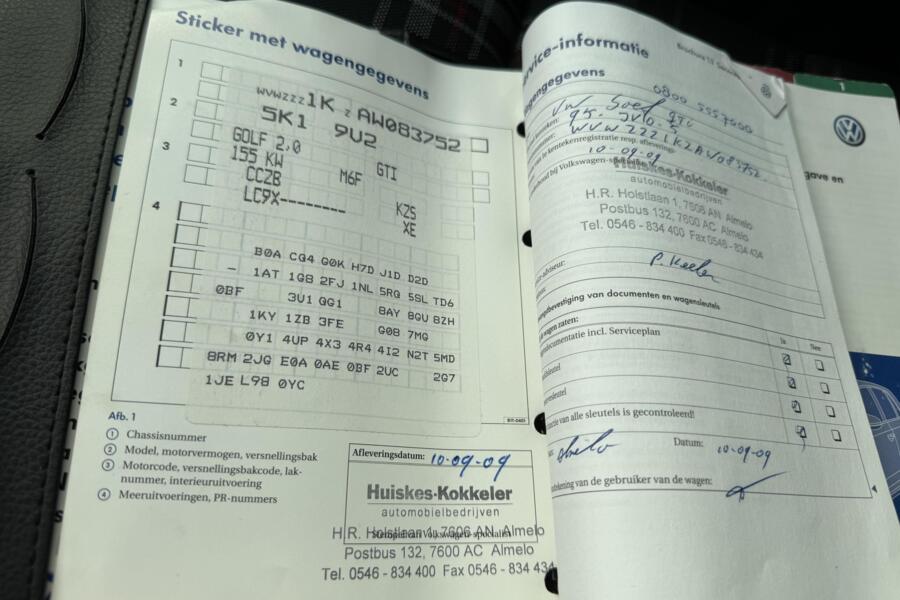 Sticker met wagengegevens
1
WVWZZZ1K Z AW083752
2
5K1 9U2
GOLF 2,0 GTI
3
155 KW M6F
CCZB
LC9X-------- KZS
XE
4
B0A CG4 G0K H7D J1D D2D
- 1AT 1G8 2FJ 1NL 5RQ 5SL TD6
0BF 3U1 QG1 8AY 8GU 8ZH
1KY 1ZB 3FE G08 7MG
0Y1 4UP 4X3 4R4 4I2 N2T 5MD
8RM 2JG E0A 0AE 0BF 2UC 2G7
1JE L98 0YC
Afb. 1
1 Chassisnummer
2 Model, motorvermogen, versnellingsbak
3 Motorcode, versnellingsbakcode, lak-
nummer, interieuruitvoering
4 Meeruitvoeringen, PR-nummers
Afleveringsdatum: 10-09-09
Huiskes-Kokkeler
automobielbedrijven
H.R. Holstlaan 1, 7606 AN Almelo
Postbus 132, 7600 AC Almelo
Tel. 0546 - 834 400 Fax 0546 - 834 434
rvice-informatie
gengegevens
0800 5557000
VW Golf GTI
95-JVG-5
WVWZZZ1KZAW083752
10-09-09
Huiskes-Kokkeler
automobielbedrijven
H.R. Holstlaan 1, 7606 AN Almelo
Postbus 132, 7600 AC Almelo
Tel. 0546 - 834 400 Fax 0546 - 834 434
adviseur:
gsbevestiging van documenten en wagensleutels
wagen zaten: Ja Nee
documentatie incl. Serviceplan
sleutel
sleutel
van alle sleutels is gecontroleerd!
Almelo Datum: 10-09-09
tekening van de gebruiker van de wagen:
1
gave en